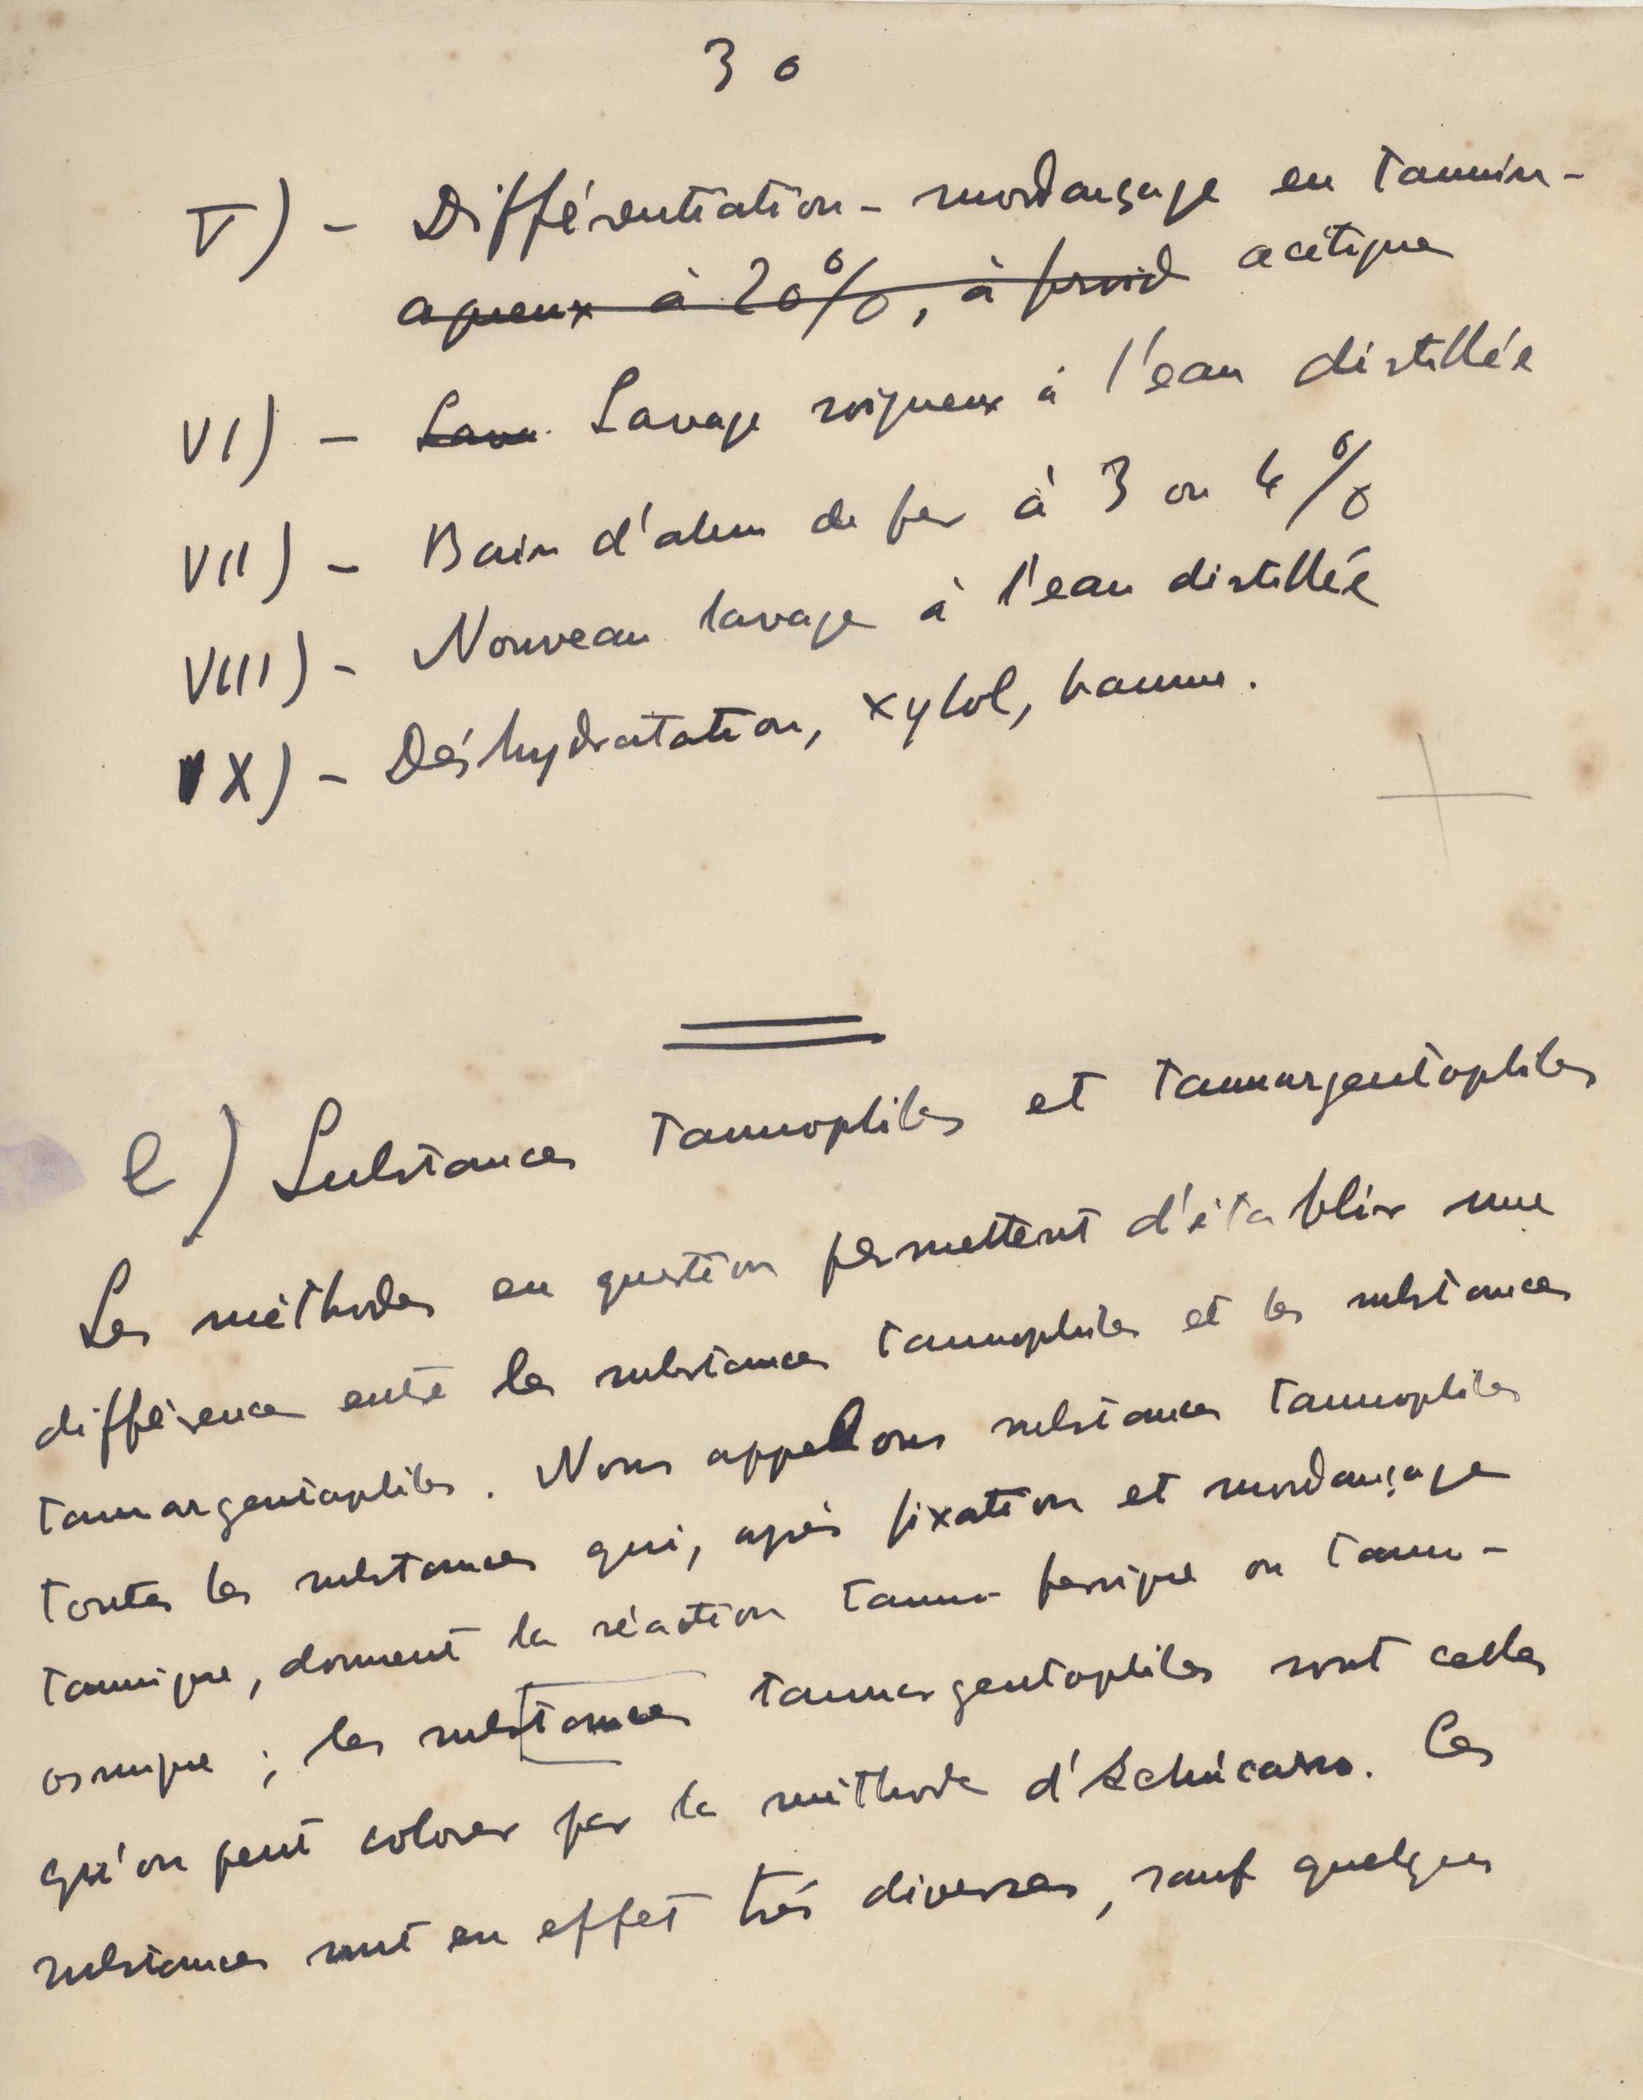 30
V) - Différentiation - mordançage en tannin-
aqueux à 20%, à froid acétique
VI) - Lava. Lavage soigneux à l'eau distillée
VII) - Bain d'alun de fer à 3 ou 4 %
VIII) - Nouveau lavage à l'eau distillée
IX) - Déshydratation, xylol, baume.
e) Substances tannophiles et tannargentophiles
Les méthodes en question permettent d'établir une
différence entre les substances tannophiles et les substances
tannargentophiles. Nous appellons substances tannophiles
toutes les substances qui, après fixation et mordançage
tannique, donnent la réaction tanno-ferrique ou tanno-
osmique ; les substances tannargentophiles sont celles
qu'on peut colorer par la méthode d'Achúcarro. Ces
substances sont en effet très diverses, sauf quelques